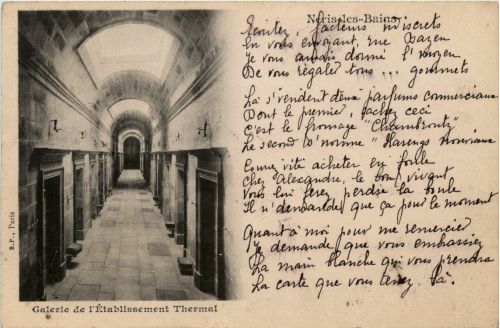 Néris-les-Bains
Ecoutez, facteurs indiscrets
En vous envoyant, rue Bazen
Je vous aurais donné l'moyen
De vous régaler tous ... gourmets
Là s'vendent deux parfums commerciaux
Dont le premier, sachez ceci
C'est le fromage "
Le second s'nomme "Harengs nouveaux
Courez vite acheter en foule
Chez Alexandre, le bon vivant
Vous lui ferez perdre la boule
Il n'demande que ça pour le moment
Quant à moi pour me remercier
Je demande que vous embrassiez
La main blanche qui vous prendra
La carte que vous tenez là.
B.F., Paris
Galerie de l'Établissement Thermal